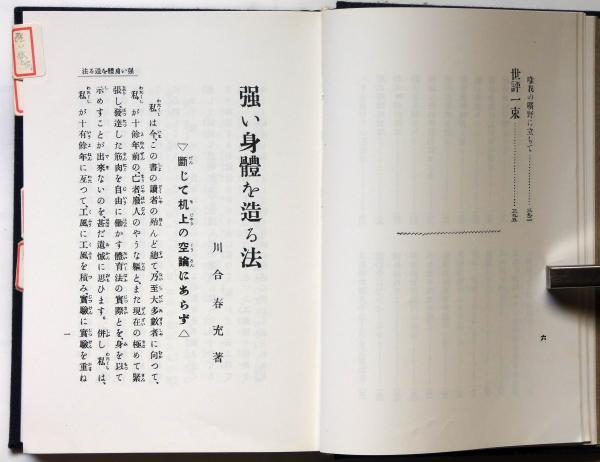 唯我の曠野に立ちて
世評一束
六
强い身體を造る法
强い身體を造る法
川合春充著
▽斷じて机上の空論にあらず△
私は今、この書の讀者の殆んど總て、乃至大多數者に向つて、
私が十餘年前の、亡者癈人のやうな軀と、また現在の極めて緊
張し、發達した筋肉を自由に働かす體育法の實際とを、身を以て
示めすことが出來ないのを、甚だ遺憾に思ひます。併し私は、
私が十有餘年に亙つて、工風に工風を積み、實驗に實驗を重ね
一